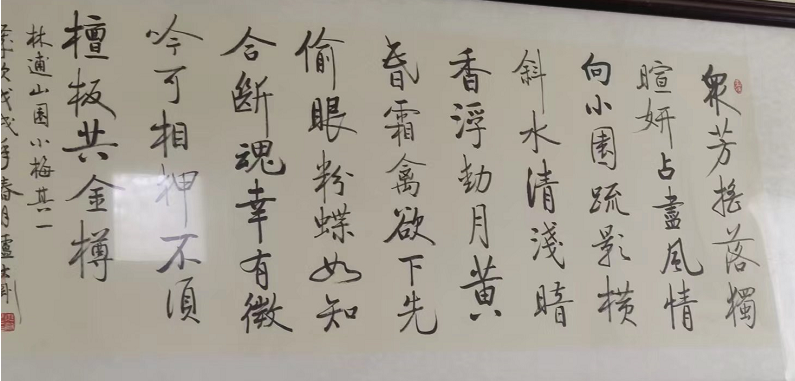 衆芳摇落獨
暄妍占盡風情
向小園疏影横
斜水清淺暗
香浮動月黄
昏霜禽欲下先
偷眼粉蝶如知
合斷魂幸有微
吟可相狎不須
檀板共金樽
林逋山園小梅其一
次戊戌年春月盧